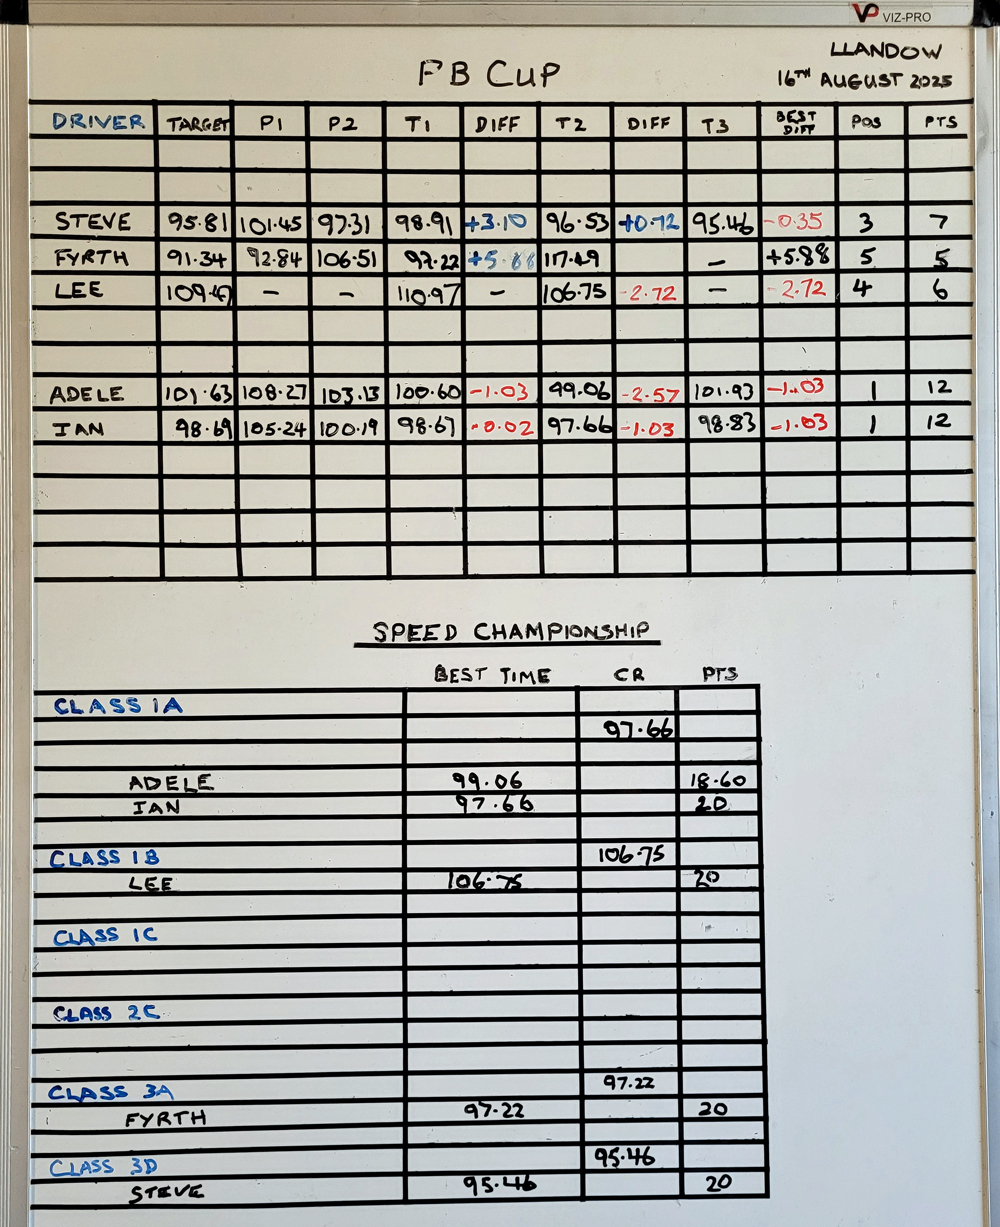 VP VIZ-PRO
LLANDOW
PB CUP
16TH AUGUST 2025
DRIVER TARGET P1 P2 T1 DIFF T2 DIFF T3 BEST DIFF POS PTS
STEVE 95.81 101.45 97.31 98.91 +3.10 96.53 +0.72 95.46 -0.35 3 7
FYRTH 91.34 92.84 106.51 97.22 +5.88 117.49 – +5.88 5 5
LEE – – 110.97 – 106.75 -2.72 – -2.72 4 6
ADELE 101.63 108.27 103.13 100.60 -1.03 99.06 -2.57 101.93 -1.03 1 12
IAN 98.69 105.24 100.19 98.67 -0.02 97.66 -1.03 98.83 -1.03 1 12
SPEED CHAMPIONSHIP
BEST TIME CR PTS
CLASS 1A
97.66
ADELE 99.06 18.60
IAN 97.66 20
CLASS 1B 106.75
LEE 106.75 20
CLASS 1C
CLASS 2C
CLASS 3A 97.22
FYRTH 97.22 20
CLASS 3D 95.46
STEVE 95.46 20